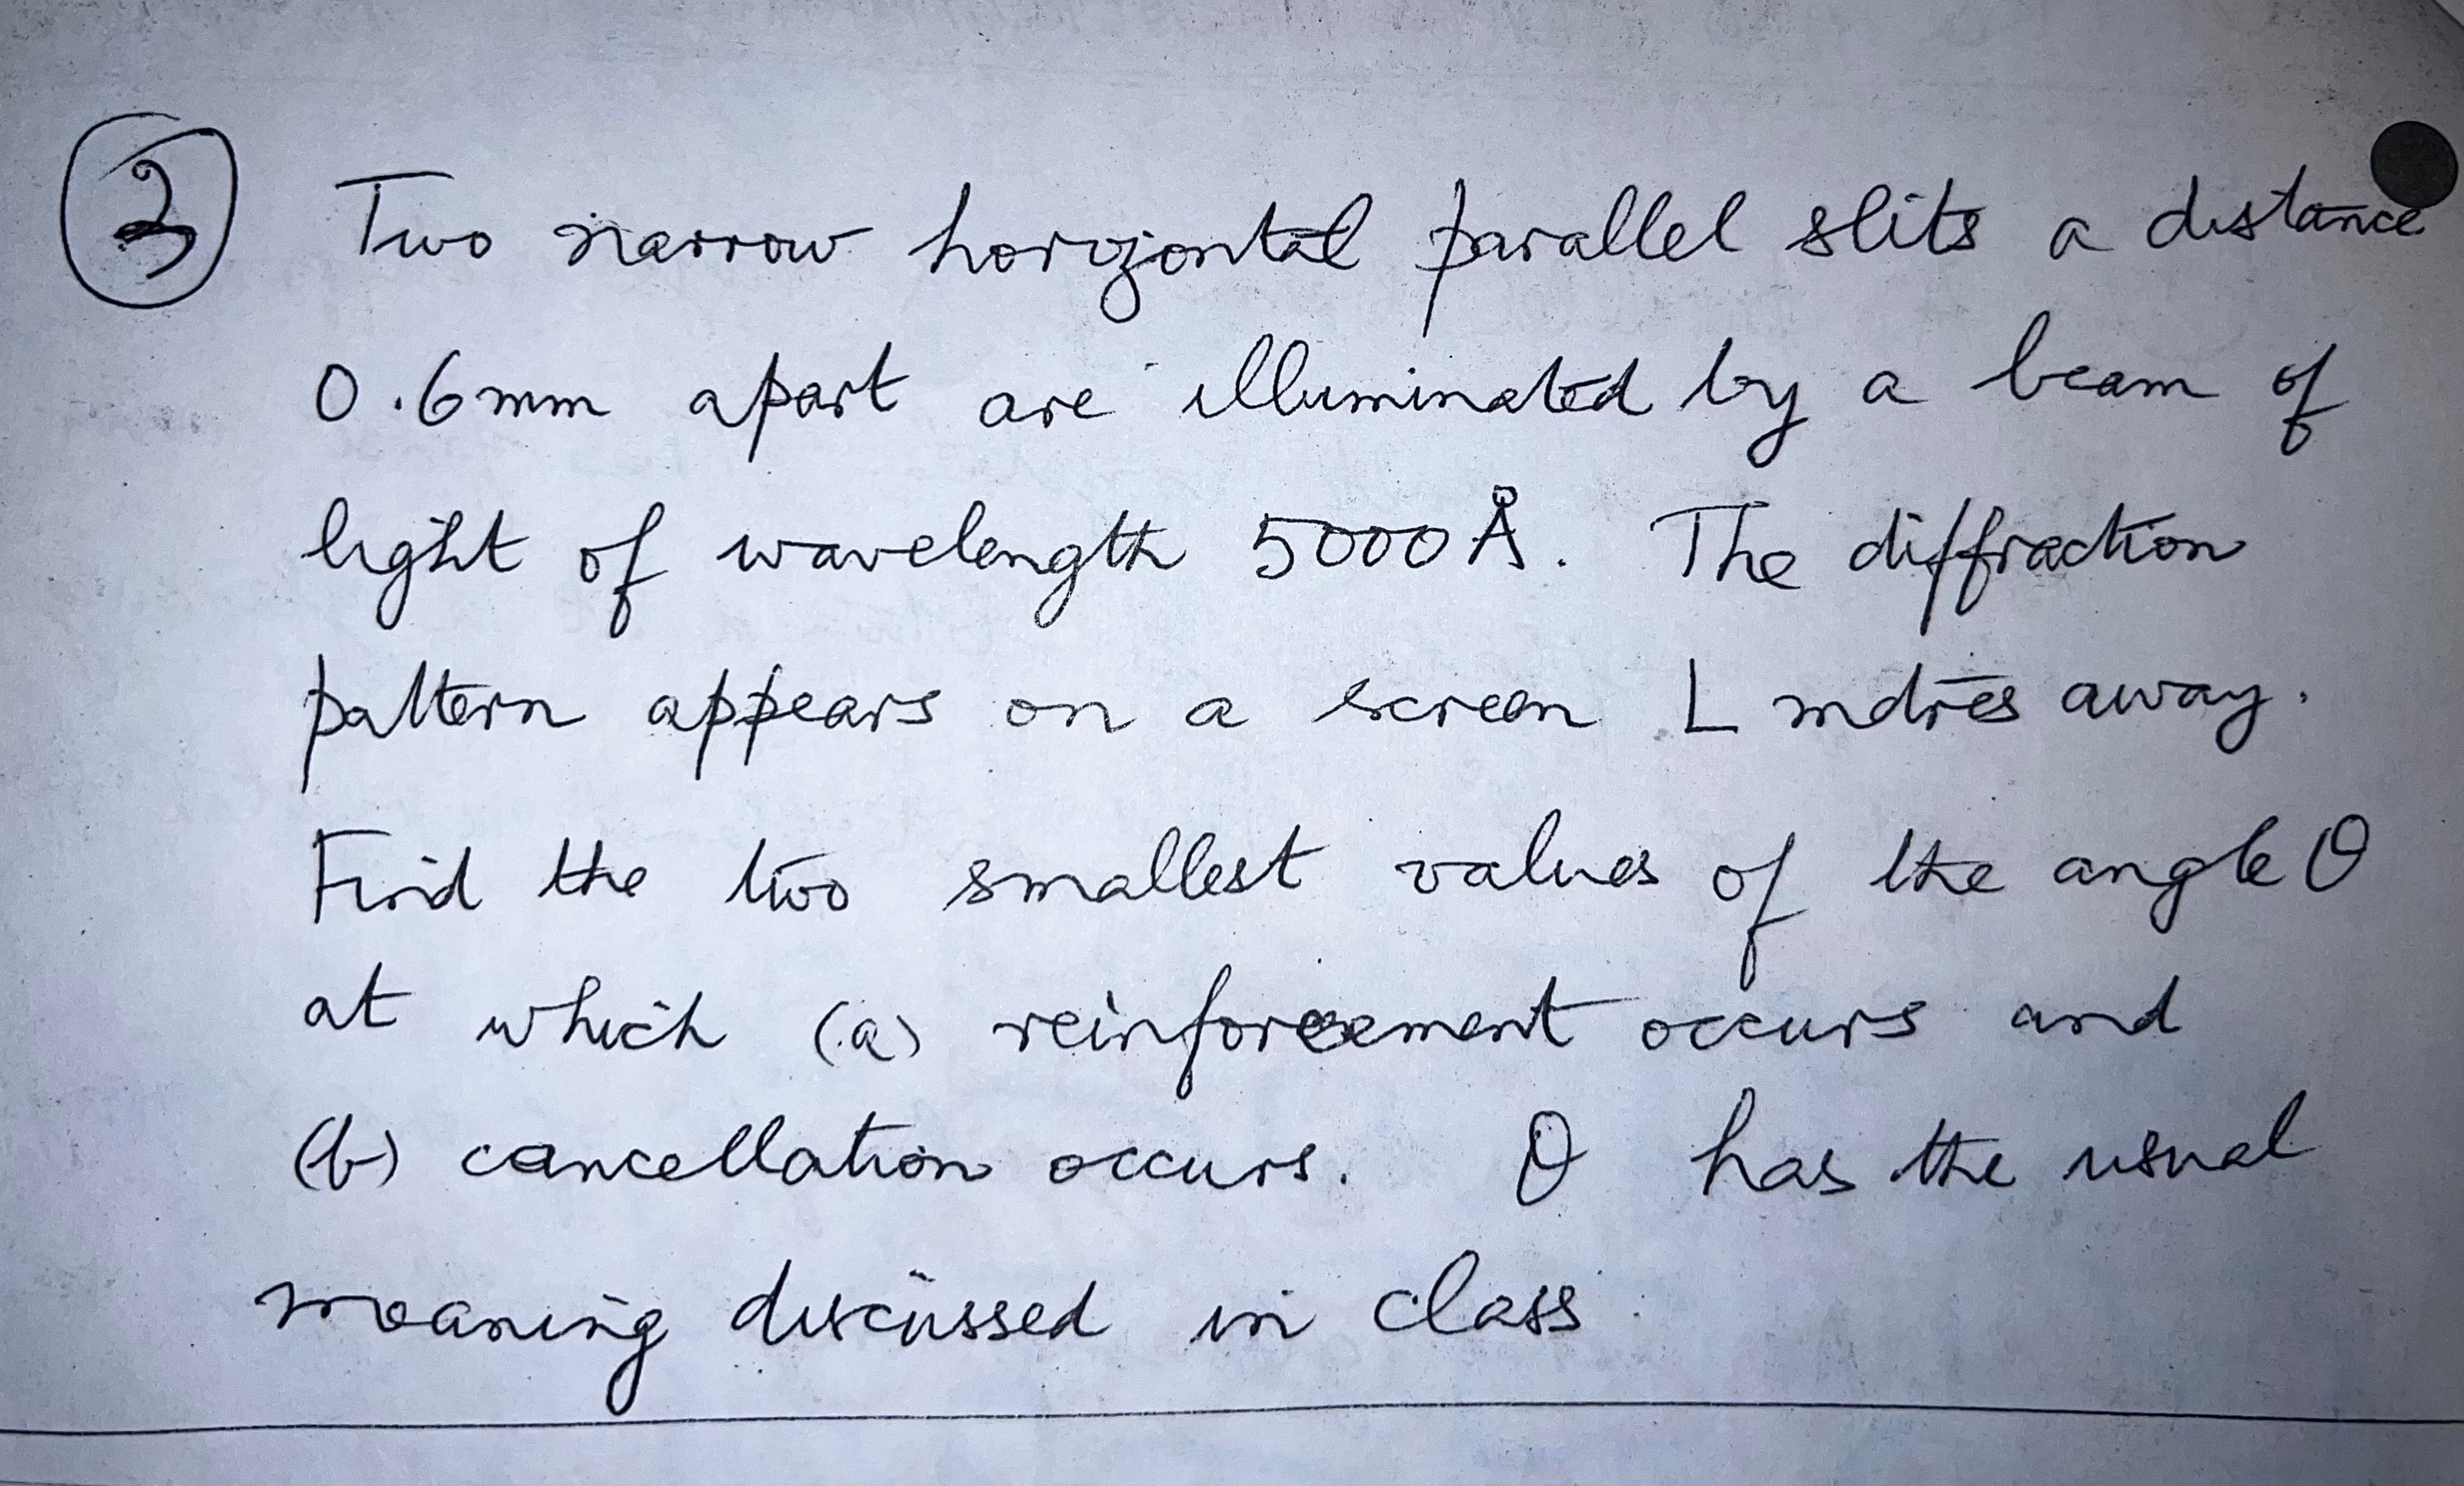 3 Two narrow horizontal parallel slits a distance
0.6mm apart are illuminated by a beam of
light of wavelength 5000 Å. The diffraction
pattern appears on a screen L metres away.
Find the two smallest values of the angle θ
at which (a) reinforcement occurs and
(b) cancellation occurs. θ has the usual
meaning discussed in class.